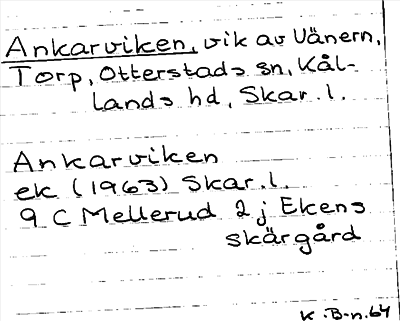 Ankarviken, vik av Vänern,
Torp, Otterstads sn, Kål-
lands hd, Skar. l.
Ankarviken
ek (1963) Skar. l.
9 C Mellerud 2 j Ekens
skärgård
K. B-n. 64